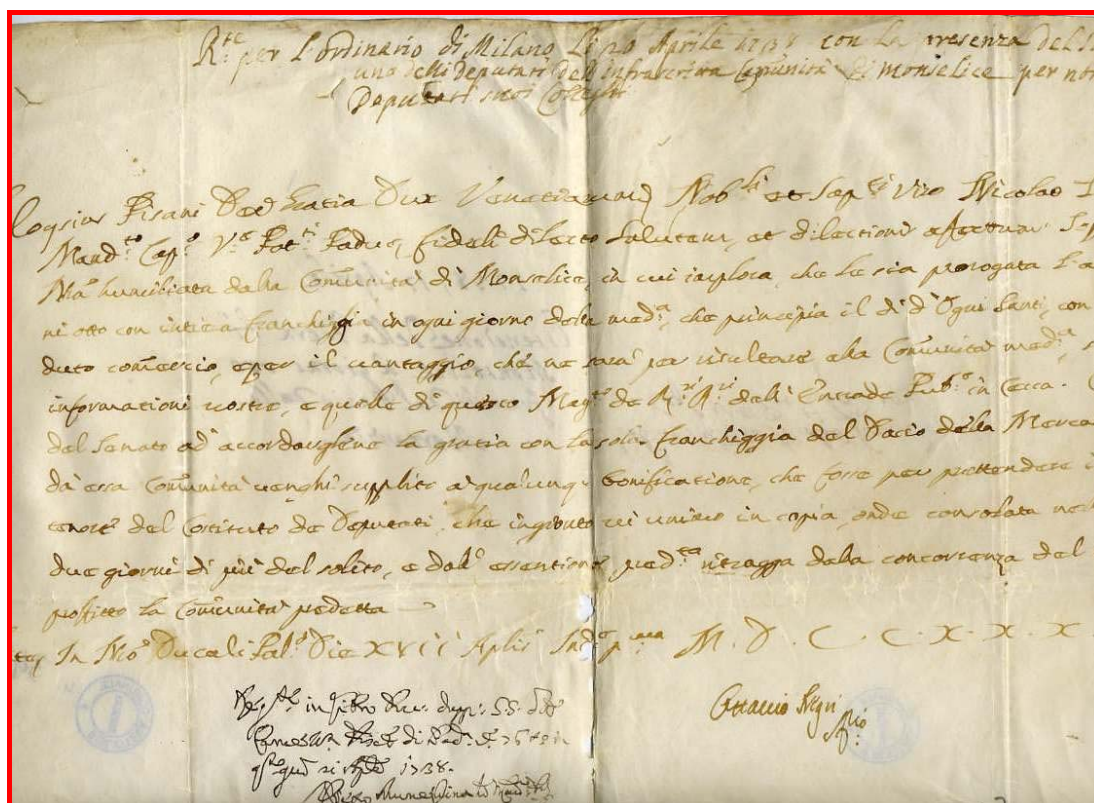 R.te per l'ordinario di Milano li 20 Aprile 1738 con la presenza del S
uno delli Deputati dell'infrascritta Comunità di Monselice per
Deputati suoi Colleghi
loysius Pisani Dei Gratia Dux Venetiarum Nob.li et Sap.ti Viro Nicolao
Mand.to Cap.o V.e Pot.ti Paduę, fideli dilecto salutem, et dilectionis affectum
humiliata dalla Comunità di Monselice, in cui implora, che le sia prorogata l'a
ni otto con intiera franchiggia in ogni giorno della med.a, che principia il dì d'Ogni Santi, con
duto commercio, e per il vantaggio, che ne sarà per risultare alla Comunità med.a, s
informationi vostre, e quelle di questo Mag.to de dell'Entrade Pub.e in Cecca.
del Senato ad accordarglene la gratia con la sola franchiggia del Dacio della Merca
da essa Comunità venghi supplito a qualunq. bonificatione, che fosse per prettendere
tenore del Costituto de Deputati, che ingionto vi unimo in copia, onde consolata
due giorni di più del solito, e dall' essentione med.ma ritragga dalla concorrenza del
proffitto la Comunità predetta
In N.o Ducali Pal.o Die XVII Aplis Ind.e p.ma M. D. C C. X. X. X
in Libro Duc.
di Pad.
1738.
Ottavio Negri